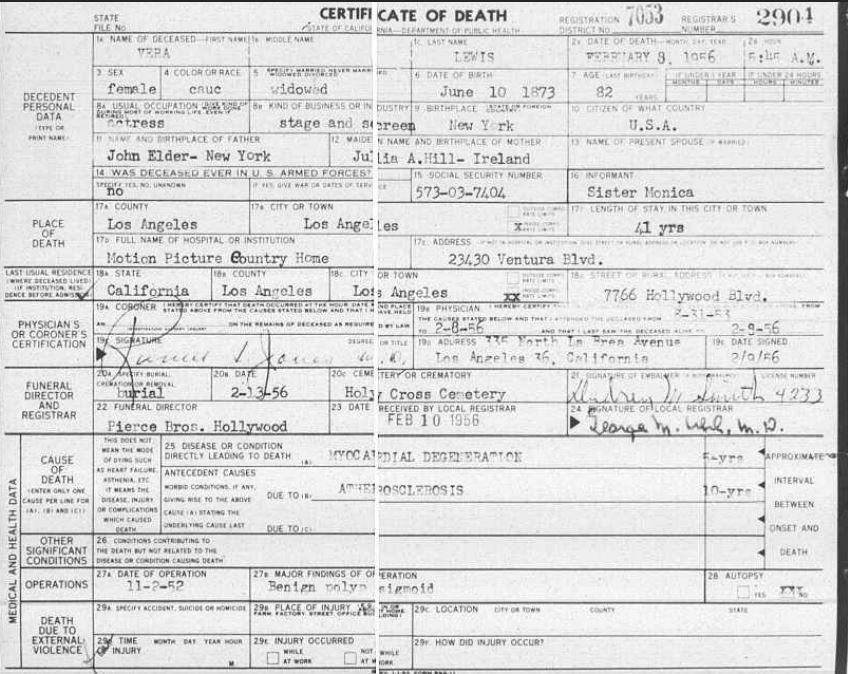 STATE FILE NO. CERTIFICATE OF DEATH REGISTRATION DISTRICT NO. 7053 REGISTRAR'S NUMBER 2904
STATE OF CALIFORNIA—DEPARTMENT OF PUBLIC HEALTH
DECEDENT PERSONAL DATA (TYPE OR PRINT NAME)
1A NAME OF DECEASED—FIRST NAME 1B MIDDLE NAME 1C LAST NAME 2A DATE OF DEATH—MONTH, DAY, YEAR 2B HOUR
VERA LEWIS FEBRUARY 8, 1956 5:45 A.M.
3 SEX 4 COLOR OR RACE 5 6 DATE OF BIRTH 7 AGE (LAST BIRTHDAY) IF UNDER 1 YEAR IF UNDER 24 HOURS
female cauc widowed June 10 1873 82 YEARS MONTHS DAYS HOURS MINUTES
8A USUAL OCCUPATION 8B KIND OF BUSINESS OR INDUSTRY 9 BIRTHPLACE 10 CITIZEN OF WHAT COUNTRY
actress stage and screen New York U.S.A.
11 NAME AND BIRTHPLACE OF FATHER 12 MAIDEN NAME AND BIRTHPLACE OF MOTHER 13 NAME OF PRESENT SPOUSE (IF MARRIED)
John Elder- New York Julia A.Hill- Ireland
14 WAS DECEASED EVER IN U. S. ARMED FORCES? 15 SOCIAL SECURITY NUMBER 16 INFORMANT
SPECIFY YES, NO, UNKNOWN IF YES, GIVE WAR OR DATES OF SERV
no 573-03-7404 Sister Monica
PLACE OF DEATH
17A COUNTY 17B CITY OR TOWN 17C LENGTH OF STAY IN THIS CITY OR TOWN
Los Angeles Los Angeles X 41 yrs
17D FULL NAME OF HOSPITAL OR INSTITUTION 17E ADDRESS
Motion Picture Country Home 23430 Ventura Blvd.
LAST USUAL RESIDENCE (WHERE DECEASED LIVED) (IF INSTITUTION, RESIDENCE BEFORE ADMISS
18A STATE 18B COUNTY 18C CITY OR TOWN 18D STREET OR RURAL ADDRESS
California Los Angeles Los Angeles XX 7766 Hollywood Blvd.
PHYSICIAN'S OR CORONER'S CERTIFICATION
19A CORONER I HEREBY CERTIFY THAT DEATH OCCURRED AT THE HOUR DATE A STATED ABOVE FROM THE CAUSES STATED BELOW AND THAT I HAVE HELD
AN ON THE REMAINS OF DECEASED AS REQUIRED BY LAW
19B PHYSICIAN I HEREBY CERTIFY 8-31-53
TO 2-8-56 AND THAT I LAST SAW THE DECEASED ALIVE 2-8-56
19C SIGNATURE DEGREE OR TITLE 19D ADDRESS 335 North La Brea Avenue 19E DATE SIGNED
Los Angeles 36, California 2/9/56
FUNERAL DIRECTOR AND REGISTRAR
20A SPECIFY BURIAL, CREMATION OR REMOVAL 20B DATE 20C CEMETERY OR CREMATORY 21 SIGNATURE OF EMBALMER LICENSE NUMBER
burial 2-13-56 Holy Cross Cemetery Audrey M Smith 4233
22 FUNERAL DIRECTOR 23 DATE RECEIVED BY LOCAL REGISTRAR 24 SIGNATURE OF LOCAL REGISTRAR
Pierce Bros. Hollywood FEB 10 1956 George M. Uhl, M.D.
MEDICAL AND HEALTH DATA
CAUSE OF DEATH (ENTER ONLY ONE CAUSE PER LINE FOR (A), (B) AND (C))
THIS DOES NOT MEAN THE MODE OF DYING SUCH AS HEART FAILURE, ASTHENIA, ETC. IT MEANS THE DISEASE, INJURY OR COMPLICATIONS WHICH CAUSED DEATH
25 DISEASE OR CONDITION DIRECTLY LEADING TO DEATH (A) MYOCARDIAL DEGENERATION 5-yrs
ANTECEDENT CAUSES
MORBID CONDITIONS, IF ANY, GIVING RISE TO THE ABOVE CAUSE (A) STATING THE UNDERLYING CAUSE LAST
DUE TO (B) ATHEROSCLEROSIS 10-yrs
DUE TO (C)
APPROXIMATE INTERVAL BETWEEN ONSET AND DEATH
OTHER SIGNIFICANT CONDITIONS
26 CONDITIONS CONTRIBUTING TO THE DEATH BUT NOT RELATED TO THE DISEASE OR CONDITION CAUSING DEATH
OPERATIONS
27A DATE OF OPERATION 27B MAJOR FINDINGS OF OPERATION 28 AUTOPSY
11-2-52 Benign polyp sigmoid YES XX NO
DEATH DUE TO EXTERNAL VIOLENCE
29A SPECIFY ACCIDENT, SUICIDE OR HOMICIDE 29B PLACE OF INJURY 29C LOCATION CITY OR TOWN COUNTY STATE
29D TIME OF INJURY MONTH DAY YEAR HOUR M 29E INJURY OCCURRED WHILE AT WORK NOT WHILE AT WORK 29F HOW DID INJURY OCCUR?